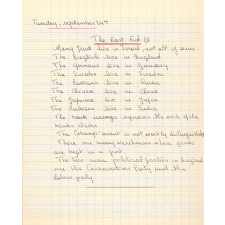 Tuesday, September 24th
The East End (2)
Many Jews live in Israel, not all of them
The English live in England
The Germans live in Germany
The Swedes live in Sweden
The Russians live in Russia
The Chinese live in China
The Japanese live in Japan
The Indians live in India
The bank manager the work of the
bank's clerks
The is not easily
There are many warehouses where goods
are kept in a port
The two main political parties in England
are the Conservative Party and the
Labour party.